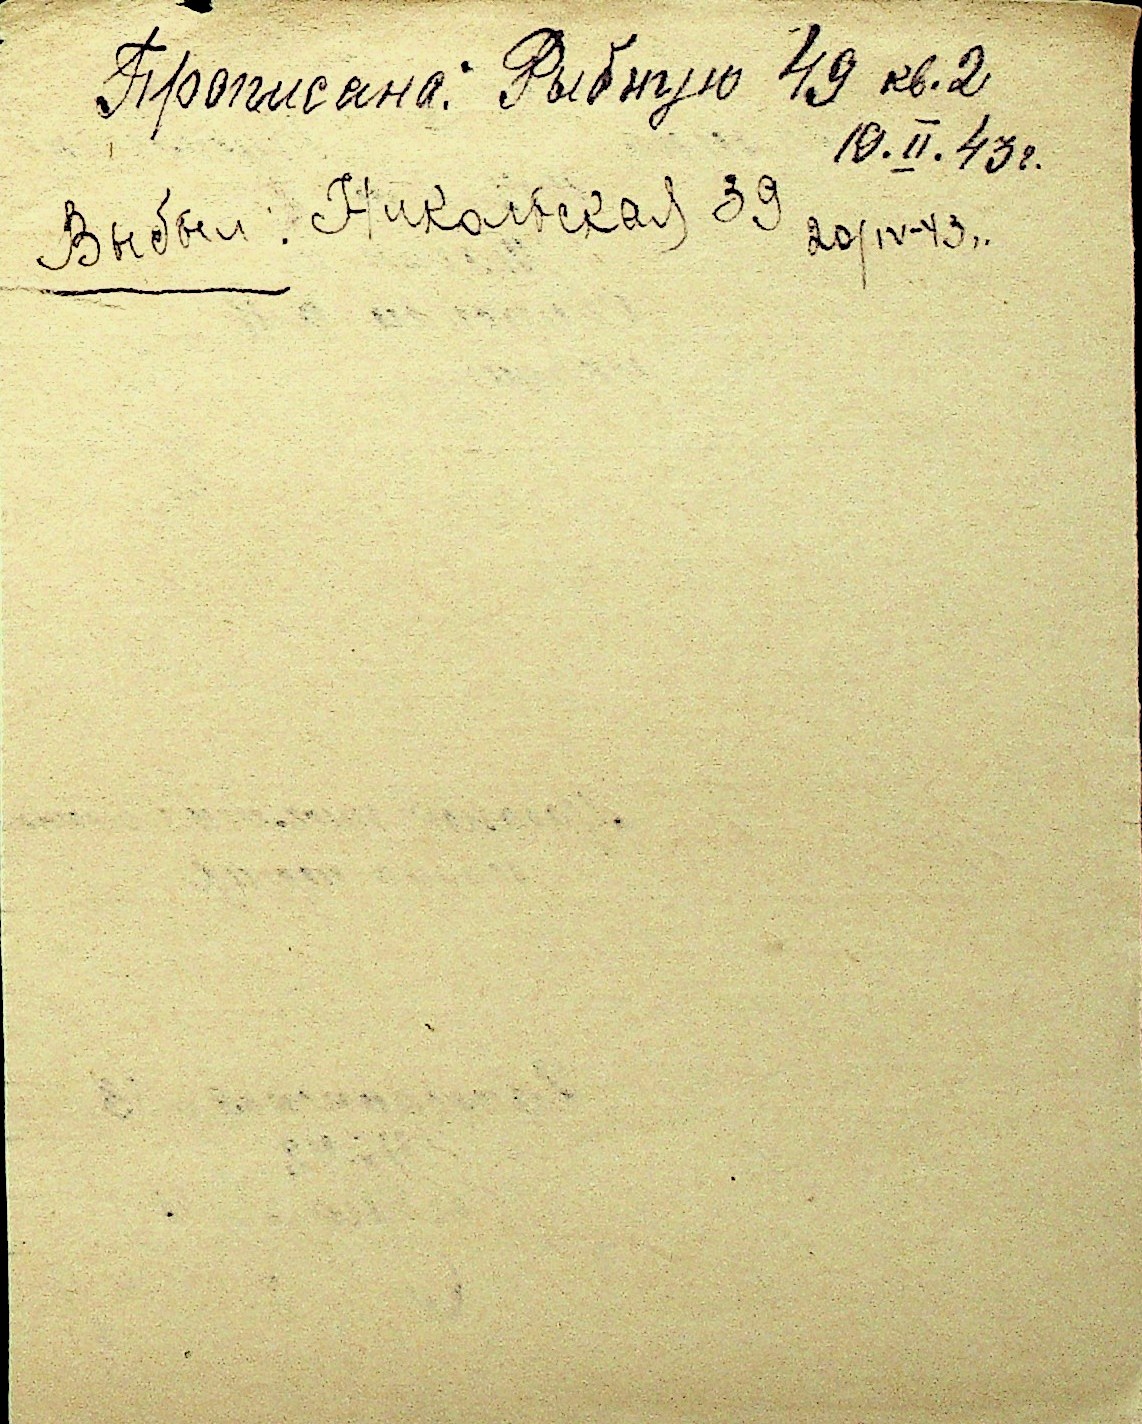 Прописана: Рыбную 49 кв. 2
10.II.43г.
Выбыл: Никольская 39 20/IV-43г.